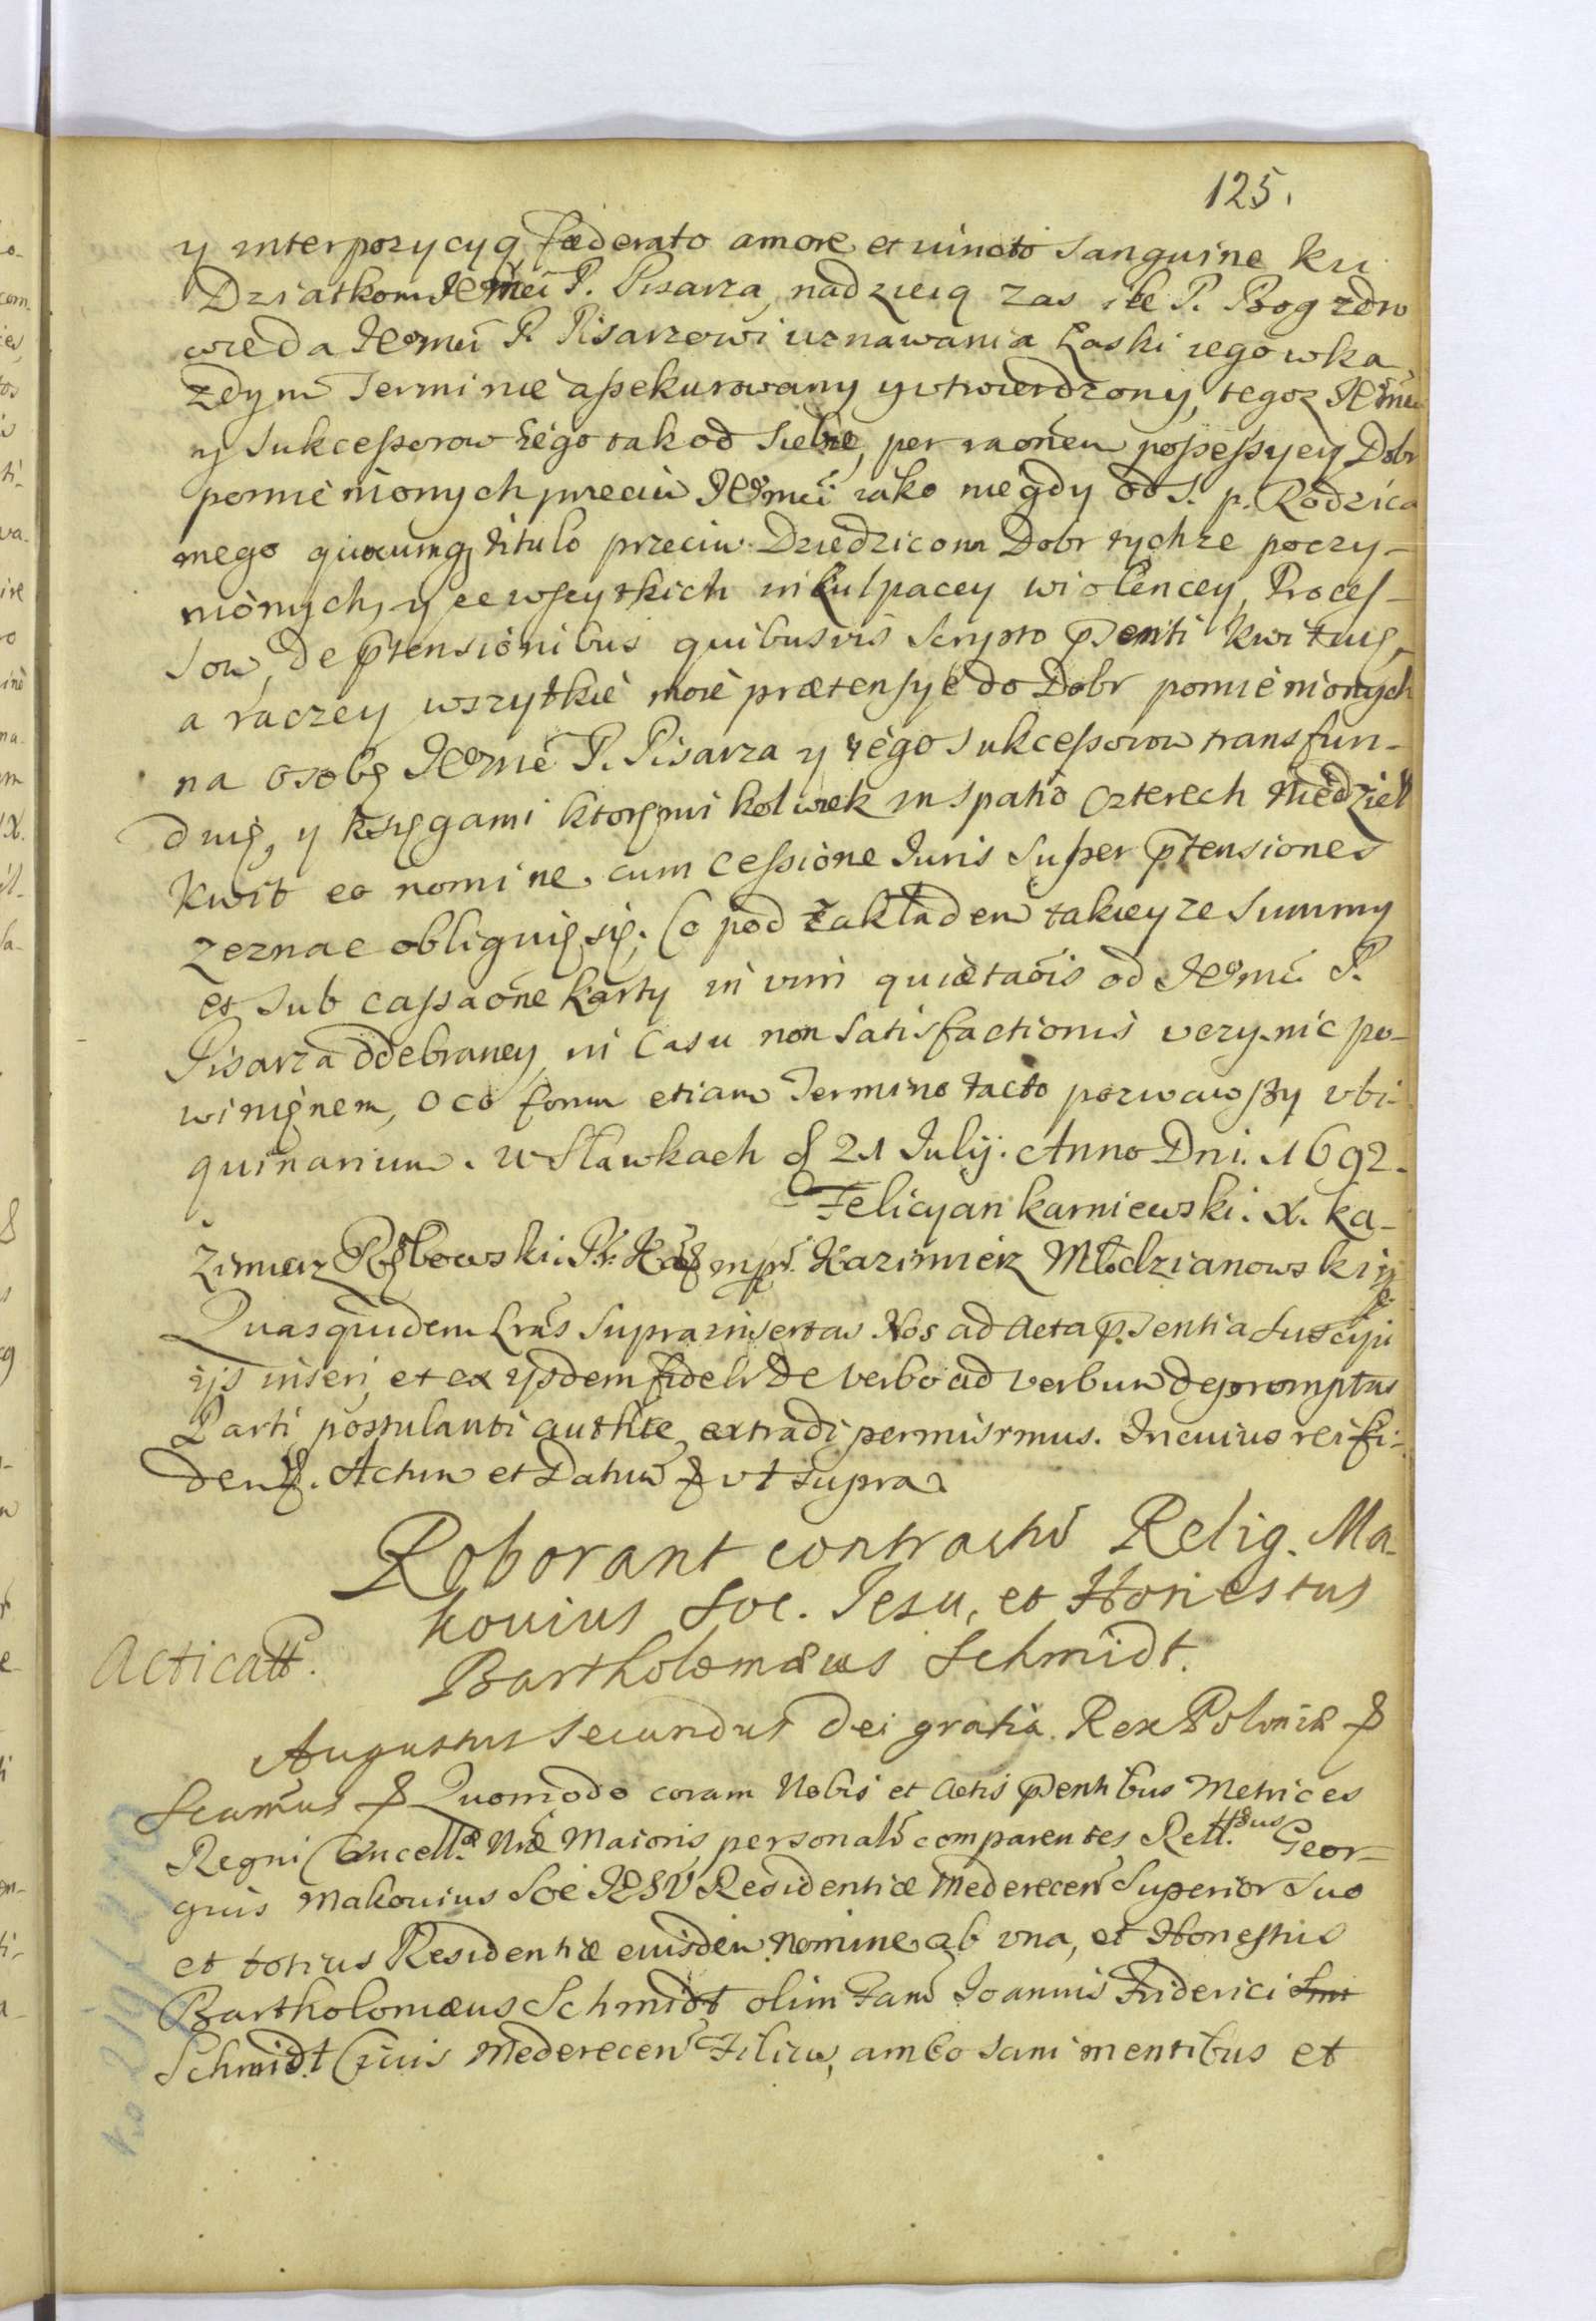 125.
y interpozycyą fæderato amore et vincto Sanguine ku
Dziatkom Jeomci P. Pisarza, nadzieią zas ile P. Bog zdro
wie da Jeomci P. Pisarzowi uznawania Łaski iego wka
zdym Terminie assekurowany y utwierdzony, tegoz Jeomci
y Sukcessorow iego tak od Siebie, per raonem possessyey Dobr
pomienionych przeciw Jeomci iako niegdy od S. p. Rodzica
mego quocumq titulo przeciw Dziedzicom Dobr tychze poczy-
nionych, y ze wszytkich inkulpacey wiolencey, Proces-
sow, de ptensionibus quibusvis Scripto psenti kwituię,
a raczey wszytkie moie prætensye do Dobr pomienionych
na osobę Jeomci P. Pisarza y iego Sukcessorow transfun-
duię, y księgami ktoremi kolwiek in spatio czterech Niedziel
Kwit eo nomine, cum cessione Juris Super ptensiones
zeznac obliguię się. Co pod zakładem takieyze Summy
et Sub cassaone karty in vim quietaois od Jeomci P.
Pisarza odebraney, in Casu non Satisfactionis uczynic po-
winienem, o co forum etiam Termino tacto pozwawszy ubi-
quinarium. w Sławkach d 21 Julij. Anno Dni. 1692.
Felicyan Karniewski. X. Ka-
zimierz Rębowski. Kazimierz Młodzianowski
Quasquidem Lras Suprainsertas Nos ad Acta psentia Suscipi
ijs inseri, et ex ijsdem fideli de verbo ad verbum depromptas
Parti postulanti authce extradi permisimus. In cuius rei fi-
dem. Actum et Datum ut supra
Roborant contractu Relig. Ma-
kovius Soc. Jesu, et Honestus
Bartholomæus Schmidt.
Acticatt.
Augustus Secundus Dei gratia Rex Poloniæ
Seamus Quomodo coram Nobis et Actis psentibus Metrices
Regni Cancellæ Nræ Maioris personalr comparentes, Rell. Geor-
gius Makovius Soc JESU Residentiæ Mederecen Superior Suo
et totius Residentiæ eiusdem Nomine ab una, et Honestus
Bartholomæus Schmidt olim Fam Joannis Friderici
Schmidt Civis Mederecen Filius, ambo sani mentibus et